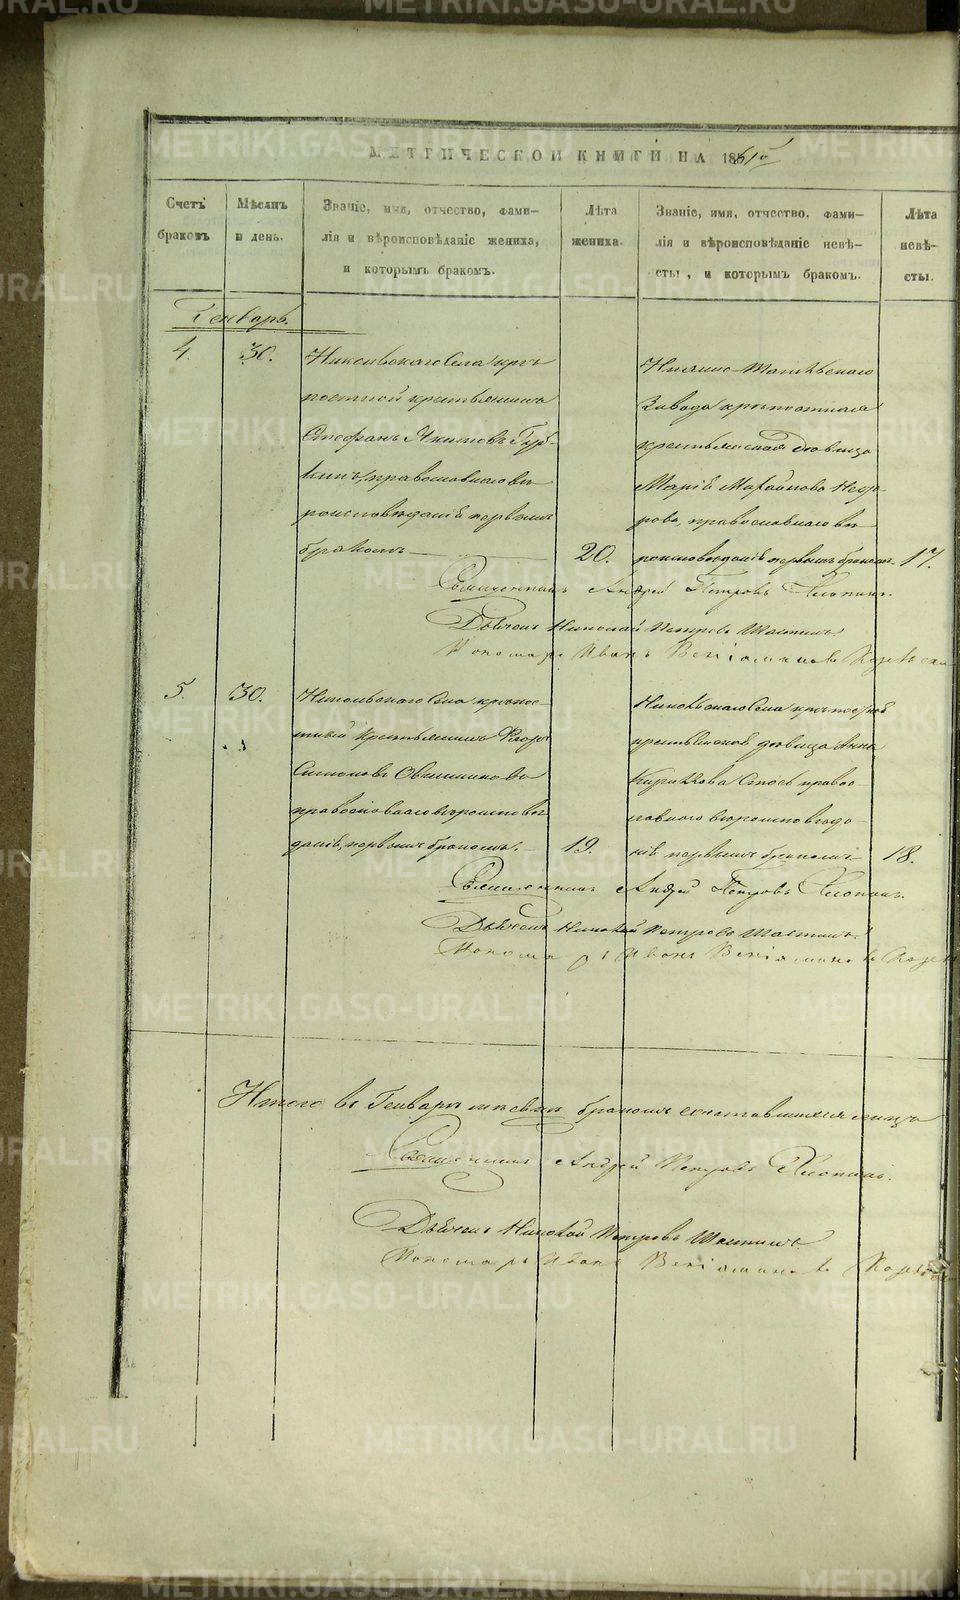 МЕТРИЧЕСКОЙ КНИГИ НА 1861й
Счетъ браковъ.
Мѣсяцъ и день.
Званіе, имя, отчество, фами-
лія и вѣроисповѣданіе жениха,
и которымъ бракомъ.
Лѣта жениха.
Званіе, имя, отчество, фами-
лія и вѣроисповѣданіе невѣ-
сты, и которымъ бракомъ.
Лѣта невѣ-
сты.
Генварь.
4.
30.
Николвскаго Села крѣ
постной крестьянинъ
Стефанъ Якимовъ
православнаго вѣ
роисповѣданія первымъ
бракомъ
20.
Нижне-Тагильскаго
Завода крѣпостная
крестьянская дѣвица
Марія Михайлова
православнаго вѣ
роисповѣданія первымъ бракомъ
17.
Священникъ Андрей Петровъ Хлопинъ.
Дьяконъ Николай Петровъ Шастинъ.
Пономарь Иванъ Веніаминовъ
5.
30.
Никольскаго Села крѣпос
тный крестьянинъ
Симоновъ Овчинниковъ
православнаго вѣроисповѣ
данія, первымъ бракомъ.
19.
Никольскаго Села крѣпостной
дѣвица Анна
Кириллова правос
лавнаго вѣроисповѣда
нія первымъ бракомъ
18.
Священникъ Андрей Петровъ Хлопинъ.
Дьяконъ Николай Петровъ Шастинъ.
Пономарь Иванъ Веніаминовъ
Итого въ Генварѣ мѣсяцѣ бракомъ сочетавшихся лицъ
Священникъ Андрей Петровъ Хлопинъ.
Дьяконъ Николай Петровъ Шастинъ
Пономарь Иванъ Веніаминовъ
METRIKI.GASO-URAL.RU